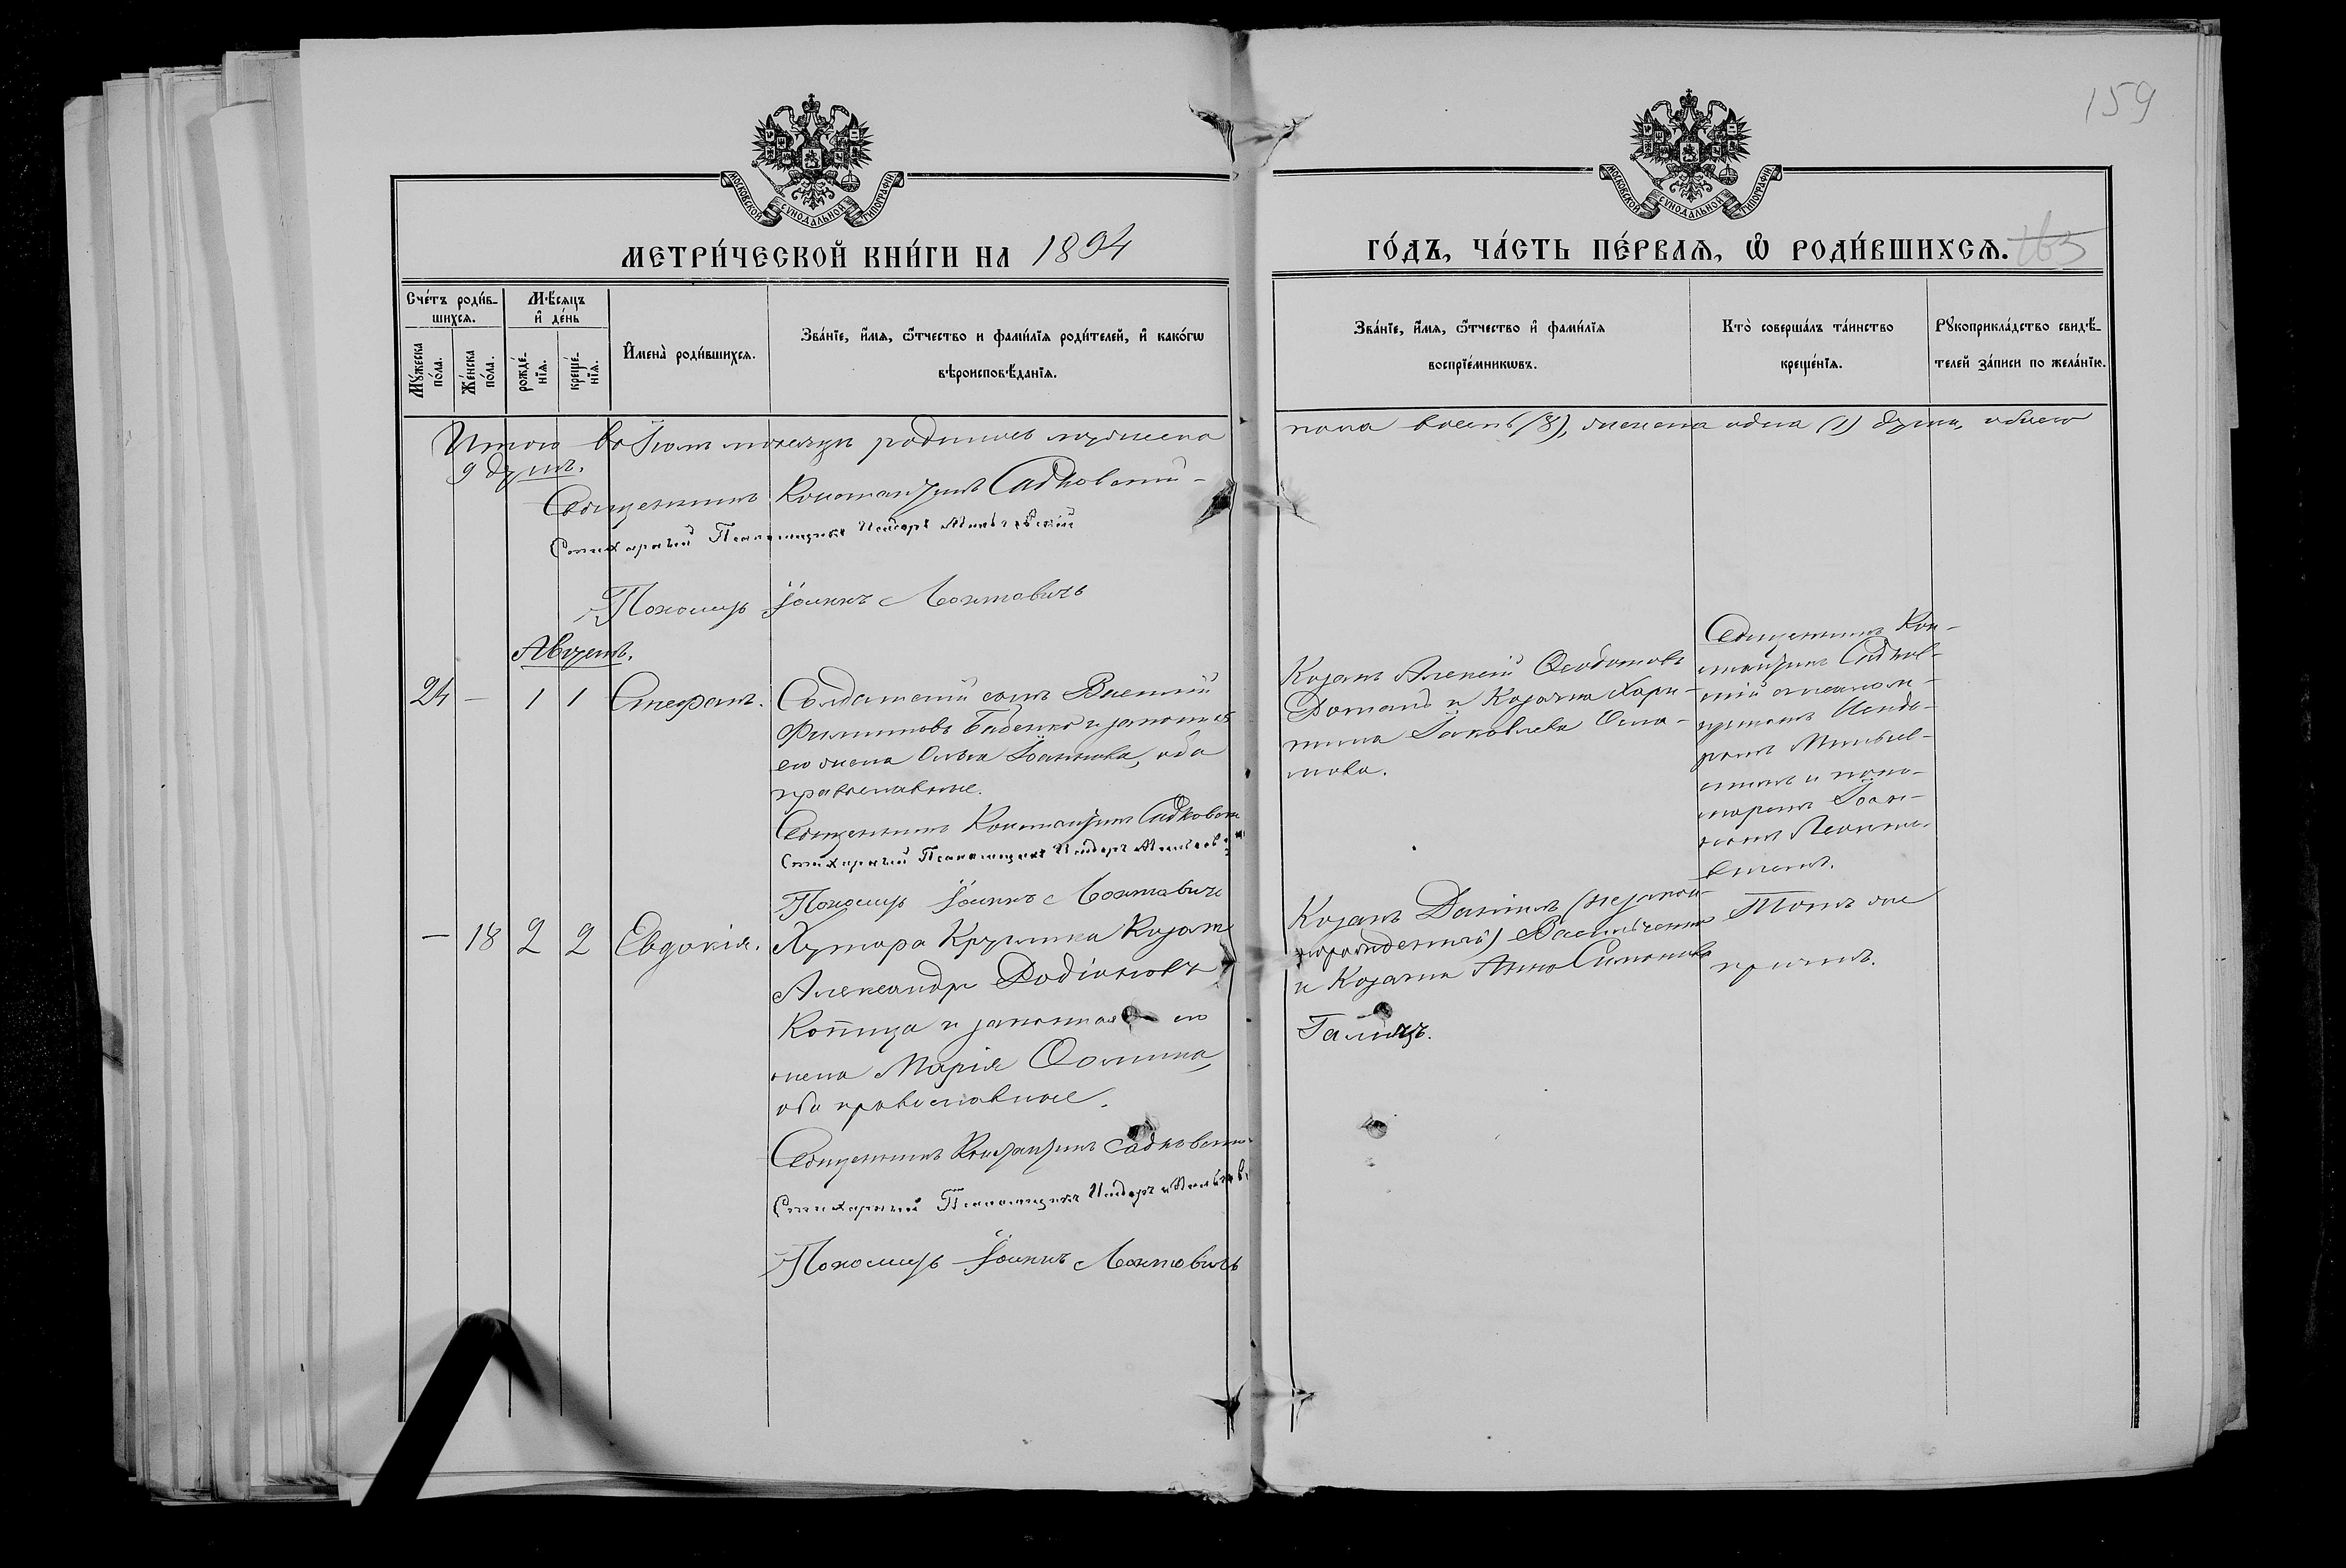 159
МОСКОВСКОЙ СУНОДАЛЬНОЙ ТИПОГРАФІИ
МОСКОВСКОЙ СУНОДАЛЬНОЙ ТИПОГРАФІИ
МЕТРИ́ЧЕСКОЙ КНИ́ГИ НА 1894
ГО́ДЪ, ЧА́СТЬ ПЕ́РВАЯ, Ѡ РОДИ́ВШИХСЯ. 165
Сче́тъ роди́в-
шихся.
Мѣсяцъ
и де́нь
Му́жеска
по́ла.
Же́нска
по́ла.
рожде́-
нія.
креще́-
нія.
Имена̀ роди́вшихся.
Зва́ніе, и́мя, ѻ́тчество и фами́лія роди́телей, и како́гѡ
вѣроисповѣ́данія.
Зва́ніе, и́мя, ѻ́тчество и фами́лія
воспріе́мникѡвъ.
Кто̀ соверша́лъ та́инство
креще́нія.
Рукоприкла́дство свидѣ́-
телей за́писи по жела́нію.
Итого въ Іюлѣ мѣсяцѣ родилось мужеска
пола восемь (8), женска одна (1) душа, обоего
9 душъ.
Священникъ Константинъ Садковскій
Стихарный Псаломщикъ Исидоръ
Пономарь Іоаннъ Леонтовичъ
Августъ.
24 — 1 1 Стефанъ.
Солдатскій сынъ Василій
Филипповъ Бабенко и законная
его жена Ольга Іоаннова, оба
православные.
Священникъ Константинъ Садковскій
Стихарный Псаломщикъ Исидоръ
Пономарь Іоаннъ Леонтовичъ
Козакъ Алексій Ѳеодотовъ
и Козачка Хари-
тина Іаковлева
Священникъ Кон-
стантинъ Садков-
скій съ псаломщ-
Исидо-
ромъ
и поно-
маремъ Іоан-
номъ Леонто-
вичемъ.
— 18 2 2 Евдокія.
Хутора Круглика Козакъ
Александръ Родіоновъ
Копица и законная его
жена Марія Ѳомина,
оба православные.
Священникъ Константинъ Садковскій
Стихарный Псаломщикъ Исидоръ
Пономарь Іоаннъ Леонтовичъ
Козакъ Даніилъ (незакон-
норожденный) Васильченко
и Козачка Анна Симонова
Галицъ.
Тотъ же
причтъ.